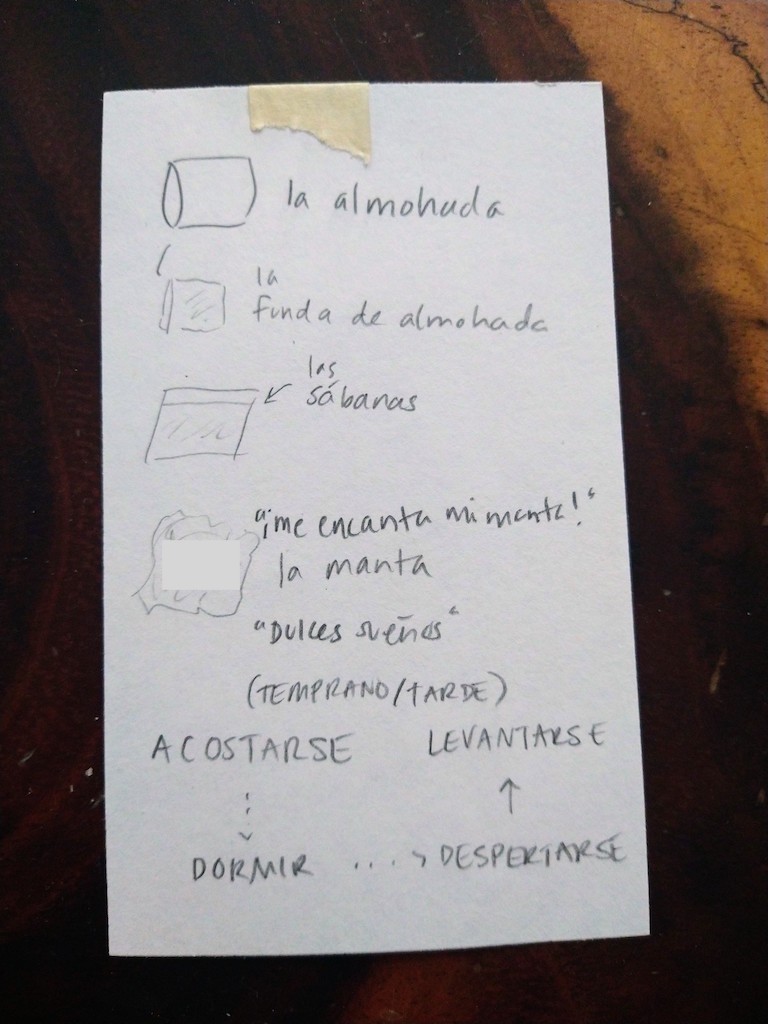 la almohada
la
funda de almohada
las
sábanas
"¡me encanta mi manta!"
la manta
"Dulces sueños"
(TEMPRANO/TARDE)
ACOSTARSE LEVANTARSE
DORMIR ....> DESPERTARSE